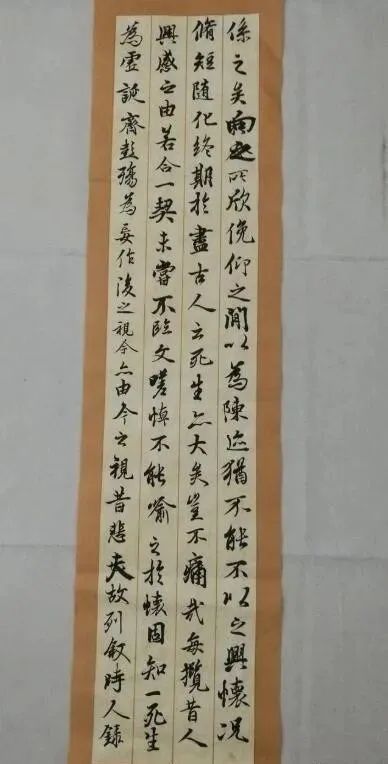 係之矣向之所欣俛仰之間以為陳迹猶不能不以之興懷況
脩短隨化終期於盡古人云死生亦大矣豈不痛哉每攬昔人
興感之由若合一契未嘗不臨文嗟悼不能喻之於懷固知一死生
為虛誕齊彭殤為妄作後之視今亦由今之視昔悲夫故列敘時人錄